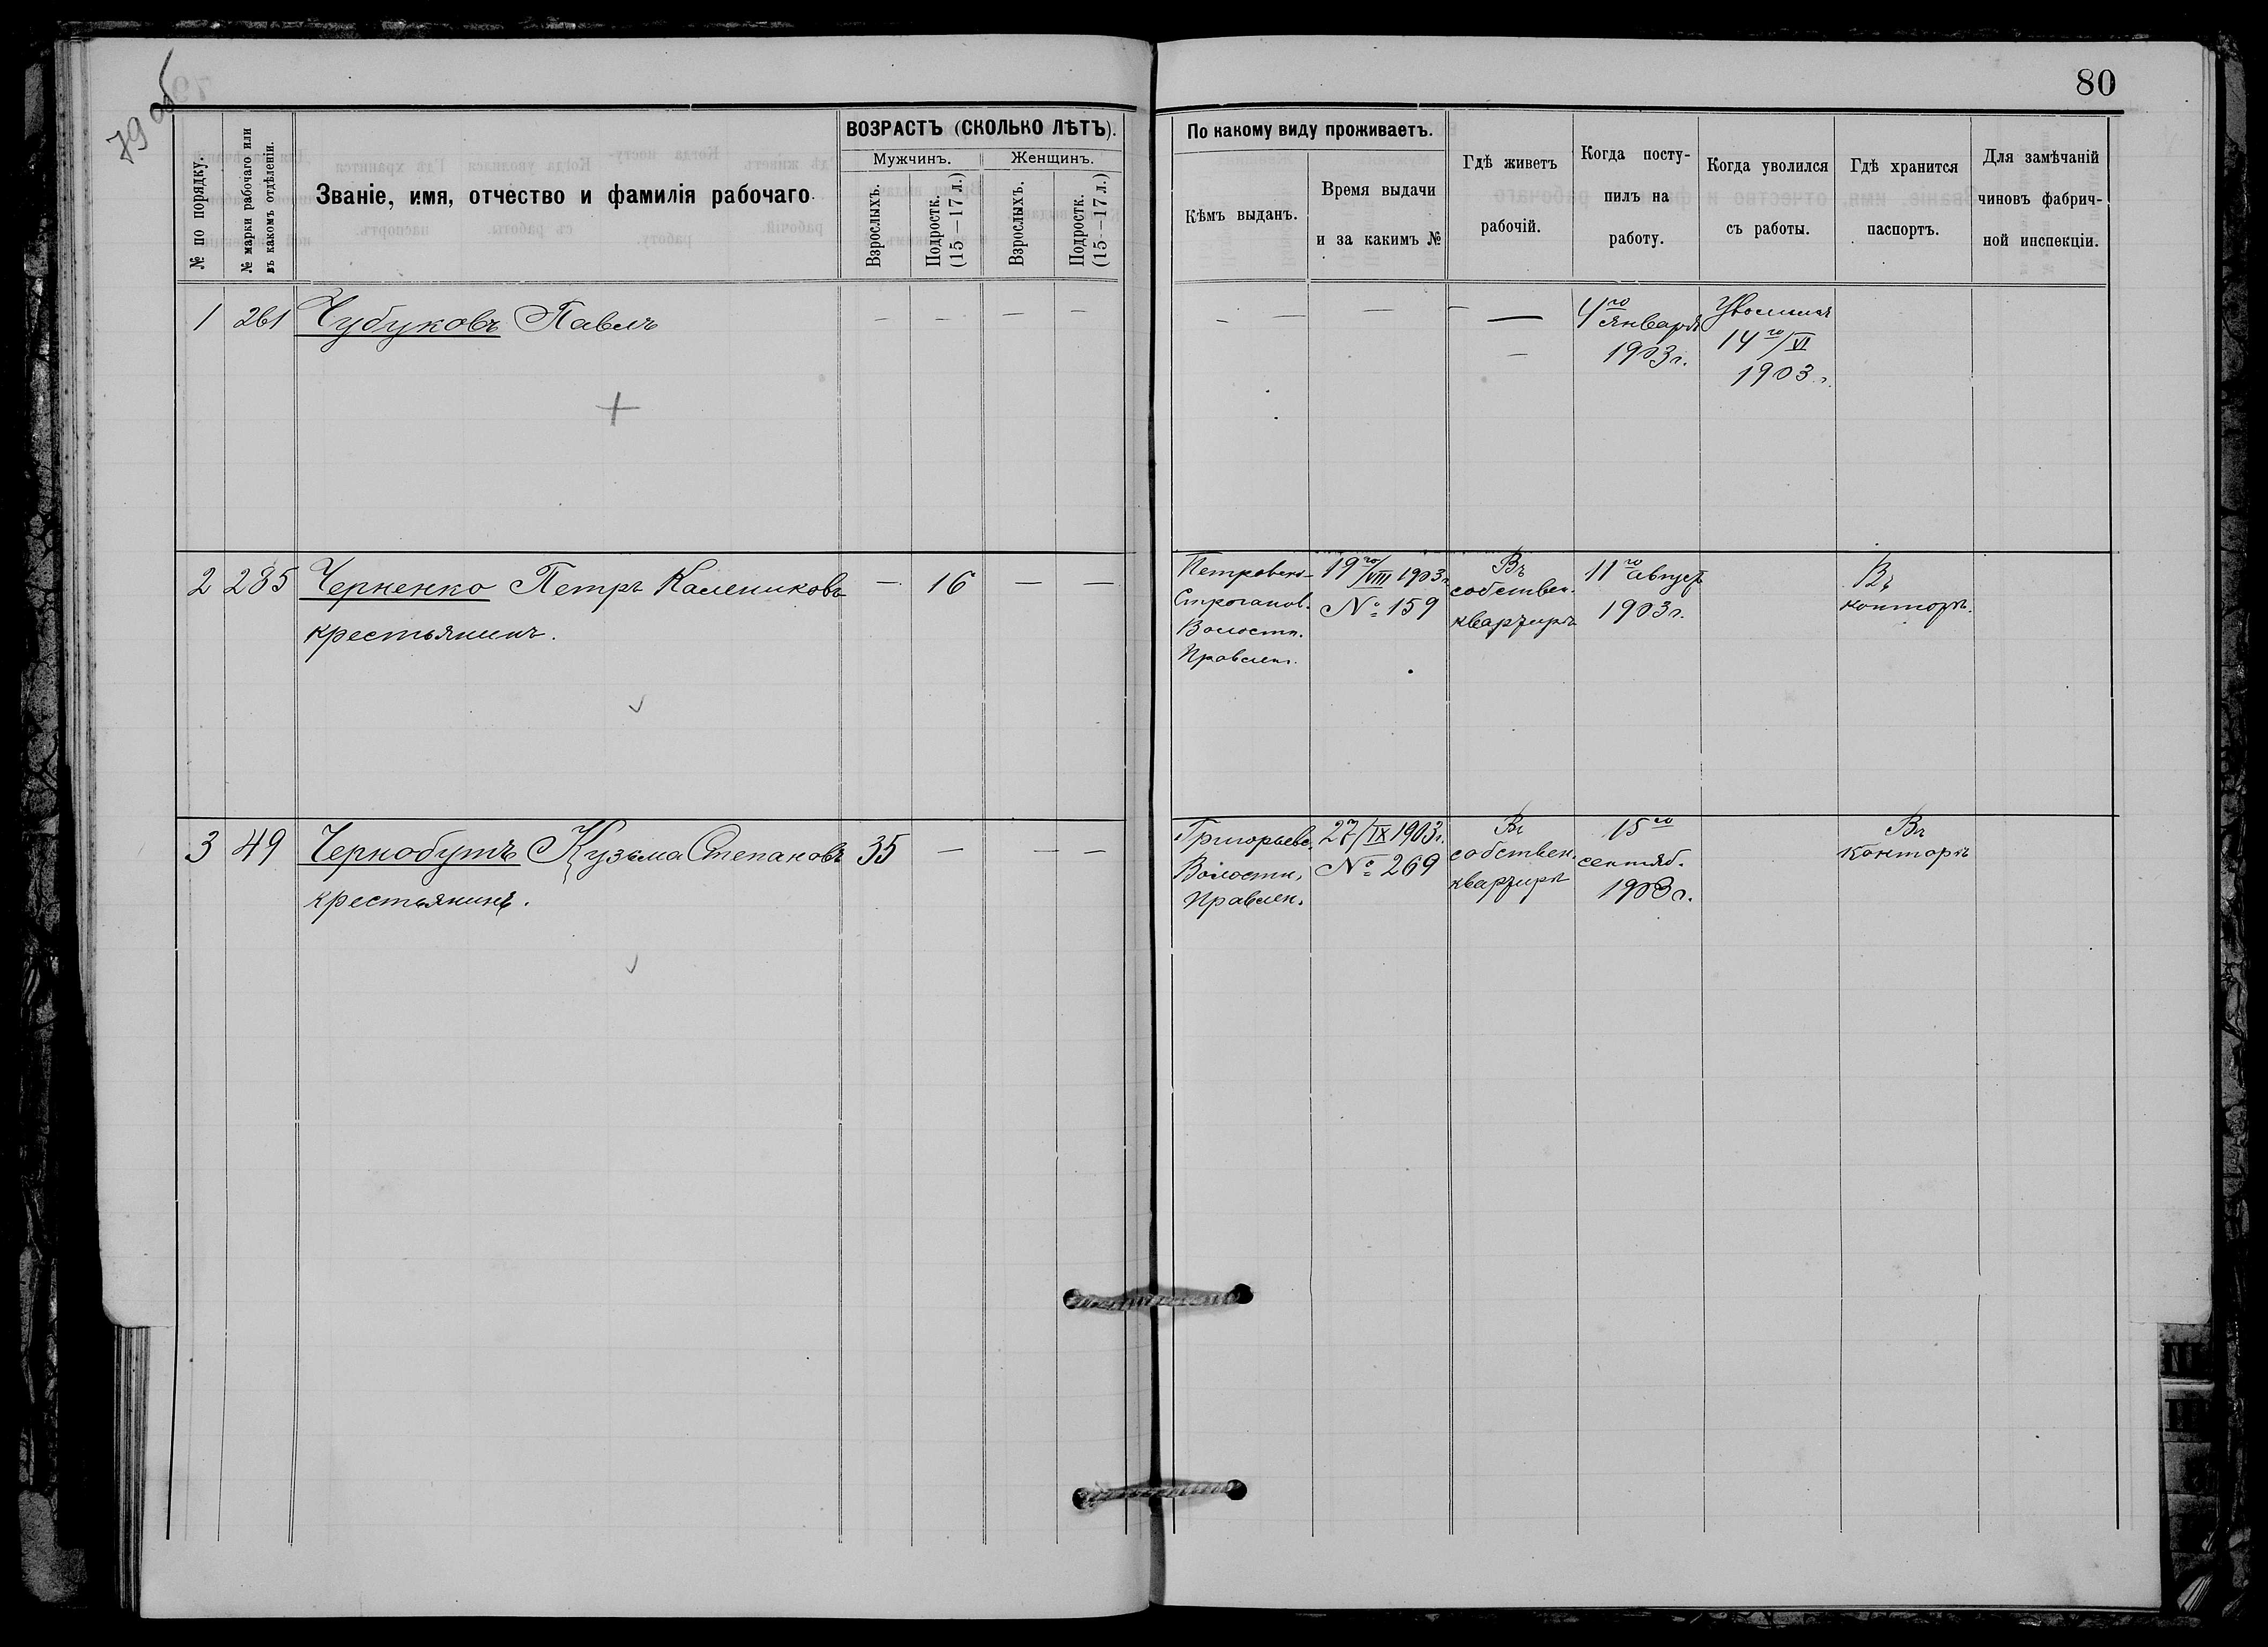 79 об
80
№ по порядку.
№ марки рабочаго или
въ какомъ отдѣленіи.
Званіе, имя, отчество и фамилія рабочаго.
ВОЗРАСТЪ (СКОЛЬКО ЛѢТЪ).
Мужчинъ.
Женщинъ.
Взрослыхъ.
Подростк.
(15—17 л.)
Взрослыхъ.
Подростк.
(15—17 л.)
По какому виду проживаетъ.
Кѣмъ выданъ.
Время выдачи
и за какимъ №
Гдѣ живетъ
рабочій.
Когда посту-
пилъ на
работу.
Когда уволился
съ работы.
Гдѣ хранится
паспортъ.
Для замѣчаній
чиновъ фабрич-
ной инспекціи.
1 261 Чубуковъ Павелъ — — — — — — — — —
4го января
1903 г.
Уволился
14го/VI
1903 г.
2 285 Черненко Петръ Калениковъ — 16 — —
крестьянинъ.
Петровско-
Строганов.
Волостн.
Правлен.
19го/VIII 1903 г.
№ 159
Въ
собствен.
квартирѣ
11го август.
1903 г.
Въ
конторѣ.
3 49 Чернобутъ Кузьма Степановъ 35 — — —
крестьянинъ.
Григорьевс.
Волостн.
Правлен.
27/IX 1903 г.
№ 269
Въ
собствен.
квартирѣ
15го
сентяб.
1903 г.
Въ
конторѣ